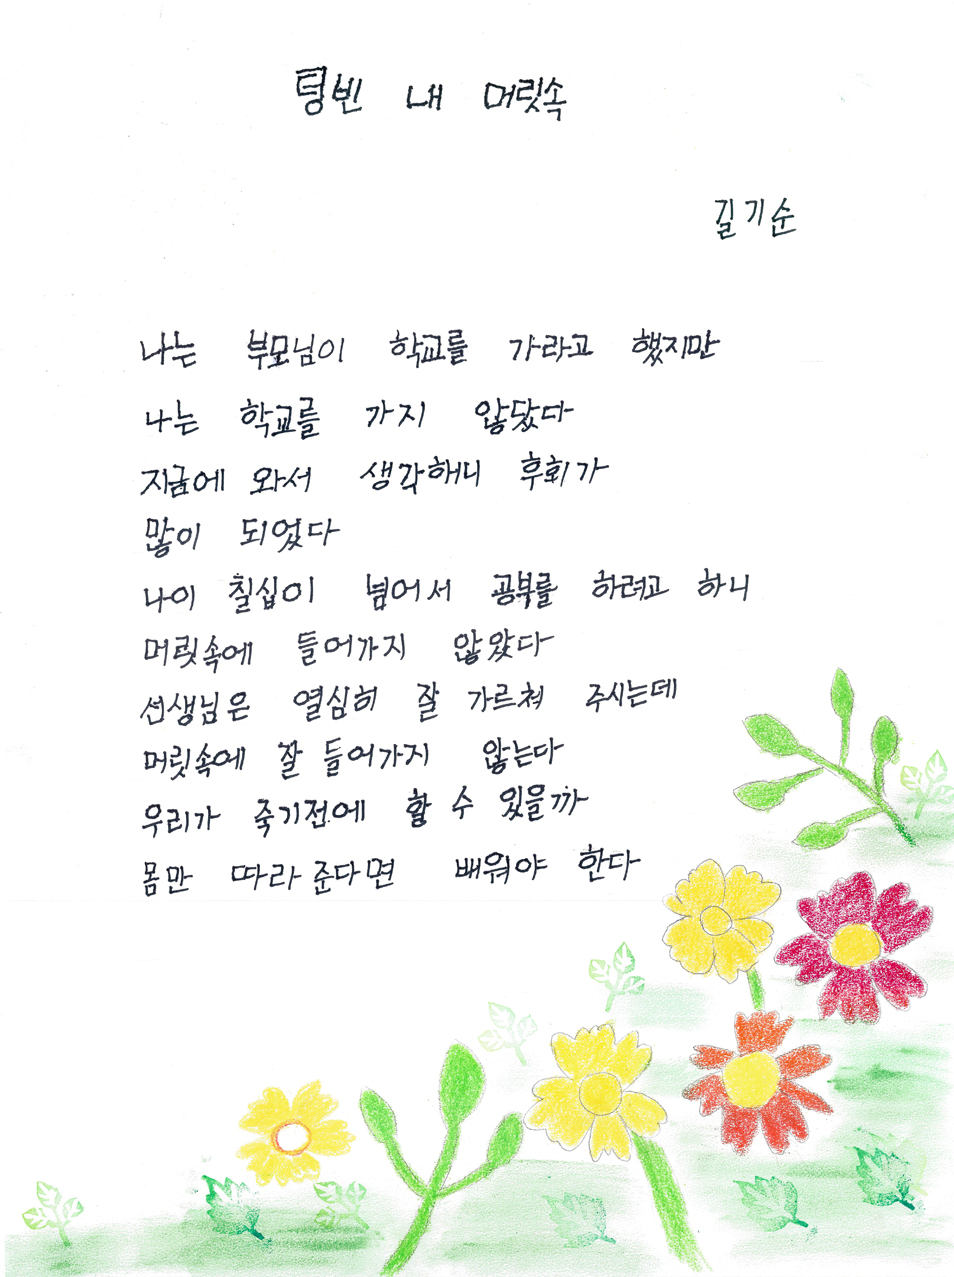 텅빈 내 머릿속
길기순
나는 부모님이 학교를 가라고 했지만
나는 학교를 가지 않닸다
지금에 와서 생각해니 후회가
많이 되었다
나이 칠십이 넘어서 공부를 하려고 하니
머릿속에 들어가지 않았다
선생님은 열심히 잘 가르쳐 주시는데
머릿속에 잘 들어가지 않는다
우리가 죽기전에 할 수 있을까
몸만 따라준다면 배워야 한다